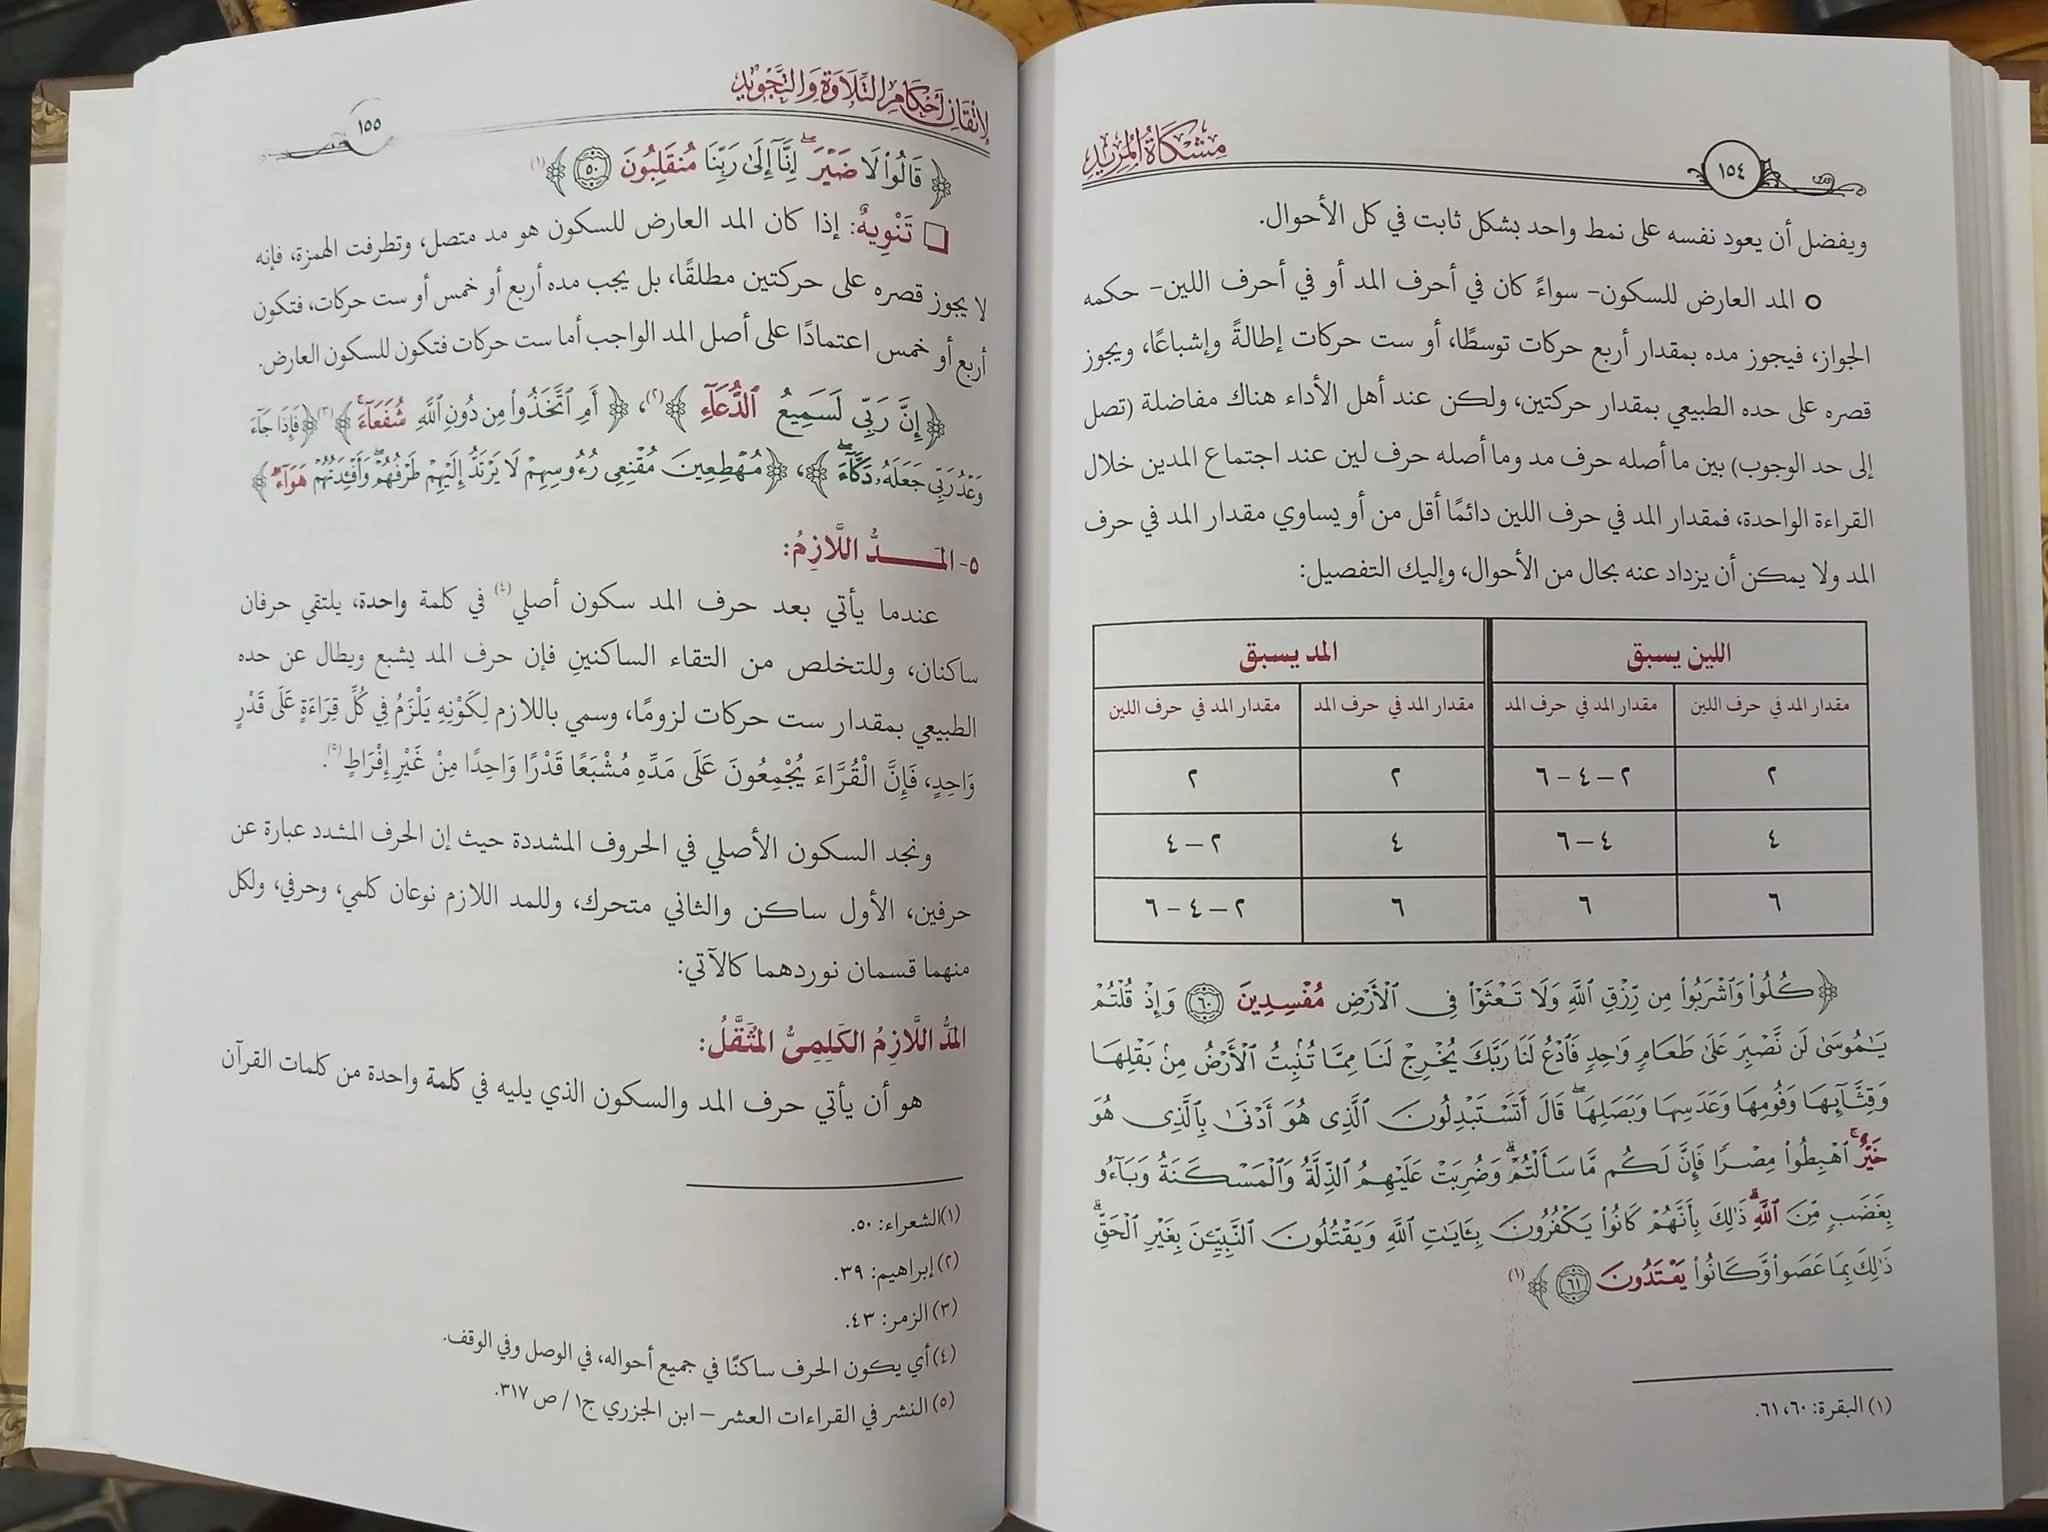 مِشْكَاةُ المُرِيدِ
١٥٤
ويفضل أن يعود نفسه على نمط واحد بشكل ثابت في كل الأحوال.
○ المد العارض للسكون- سواءً كان في أحرف المد أو في أحرف اللين- حكمه
الجواز، فيجوز مده بمقدار أربع حركات توسطًا، أو ست حركات إطالةً وإشباعًا، ويجوز
قصره على حده الطبيعي بمقدار حركتين، ولكن عند أهل الأداء هناك مفاضلة (تصل
إلى حد الوجوب) بين ما أصله حرف مد وما أصله حرف لين عند اجتماع المدين خلال
القراءة الواحدة، فمقدار المد في حرف اللين دائمًا أقل من أو يساوي مقدار المد في حرف
المد ولا يمكن أن يزداد عنه بحال من الأحوال، وإليك التفصيل:
اللين يسبق المد يسبق
مقدار المد في حرف اللين مقدار المد في حرف المد مقدار المد في حرف المد مقدار المد في حرف اللين
٢ ٢ – ٤ – ٦ ٢ ٢
٤ ٤ – ٦ ٤ ٢ – ٤
٦ ٦ ٦ ٢ – ٤ – ٦
﴿كُلُوا۟ وَٱشْرَبُوا۟ مِن رِّزْقِ ٱللَّهِ وَلَا تَعْثَوْا۟ فِى ٱلْأَرْضِ مُفْسِدِينَ ٦٠ وَإِذْ قُلْتُمْ
يَـٰمُوسَىٰ لَن نَّصْبِرَ عَلَىٰ طَعَامٍ وَٰحِدٍ فَٱدْعُ لَنَا رَبَّكَ يُخْرِجْ لَنَا مِمَّا تُنۢبِتُ ٱلْأَرْضُ مِنۢ بَقْلِهَا
وَقِثَّآئِهَا وَفُومِهَا وَعَدَسِهَا وَبَصَلِهَا ۖ قَالَ أَتَسْتَبْدِلُونَ ٱلَّذِى هُوَ أَدْنَىٰ بِٱلَّذِى هُوَ
خَيْرٌ ۚ ٱهْبِطُوا۟ مِصْرًا فَإِنَّ لَكُم مَّا سَأَلْتُمْ ۗ وَضُرِبَتْ عَلَيْهِمُ ٱلذِّلَّةُ وَٱلْمَسْكَنَةُ وَبَآءُو
بِغَضَبٍ مِّنَ ٱللَّهِ ۗ ذَٰلِكَ بِأَنَّهُمْ كَانُوا۟ يَكْفُرُونَ بِـَٔايَـٰتِ ٱللَّهِ وَيَقْتُلُونَ ٱلنَّبِيِّـۧنَ بِغَيْرِ ٱلْحَقِّ ۗ
ذَٰلِكَ بِمَا عَصَوا۟ وَّكَانُوا۟ يَعْتَدُونَ ٦١﴾(١)
(١) البقرة: ٦٠، ٦١.
لِإِتْقَانِ أَحْكَامِ التِّلَاوَةِ وَالتَّجْوِيدِ
١٥٥
﴿قَالُوا۟ لَا ضَيْرَ ۖ إِنَّآ إِلَىٰ رَبِّنَا مُنقَلِبُونَ ٥٠﴾(١)
❏ تَنْوِيهٌ: إذا كان المد العارض للسكون هو مد متصل، وتطرفت الهمزة، فإنه
لا يجوز قصره على حركتين مطلقًا، بل يجب مده أربع أو خمس أو ست حركات، فتكون
أربع أو خمس اعتمادًا على أصل المد الواجب أما ست حركات فتكون للسكون العارض.
﴿إِنَّ رَبِّى لَسَمِيعُ ٱلدُّعَآءِ﴾(٢)، ﴿أَمِ ٱتَّخَذُوا۟ مِن دُونِ ٱللَّهِ شُفَعَآءَ ۚ﴾(٣) ﴿فَإِذَا جَآءَ
وَعْدُ رَبِّى جَعَلَهُۥ دَكَّآءَ ۖ﴾، ﴿مُهْطِعِينَ مُقْنِعِى رُءُوسِهِمْ لَا يَرْتَدُّ إِلَيْهِمْ طَرْفُهُمْ ۖ وَأَفْـِٔدَتُهُمْ هَوَآءٌ﴾
٥- المَـــدُّ اللَّازِمُ:
عندما يأتي بعد حرف المد سكون أصلي(٤) في كلمة واحدة، يلتقي حرفان
ساكنان، وللتخلص من التقاء الساكنين فإن حرف المد يشبع ويطال عن حده
الطبيعي بمقدار ست حركات لزومًا، وسمي باللازم لِكَوْنِهِ يَلْزَمُ فِي كُلِّ قِرَاءَةٍ عَلَى قَدْرٍ
وَاحِدٍ، فَإِنَّ الْقُرَّاءَ يُجْمِعُونَ عَلَى مَدِّهِ مُشْبَعًا قَدْرًا وَاحِدًا مِنْ غَيْرِ إِفْرَاطٍ(٥).
ونجد السكون الأصلي في الحروف المشددة حيث إن الحرف المشدد عبارة عن
حرفين، الأول ساكن والثاني متحرك، وللمد اللازم نوعان كلمي، وحرفي، ولكل
منهما قسمان نوردهما كالآتي:
المَدُّ اللَّازِمُ الكَلِمِىُّ المُثَقَّلُ:
هو أن يأتي حرف المد والسكون الذي يليه في كلمة واحدة من كلمات القرآن
(١)الشعراء: ٥٠.
(٢) إبراهيم: ٣٩.
(٣) الزمر: ٤٣.
(٤) أي يكون الحرف ساكنًا في جميع أحواله، في الوصل وفي الوقف.
(٥) النشر في القراءات العشر – ابن الجزري ج١ / ص ٣١٧.